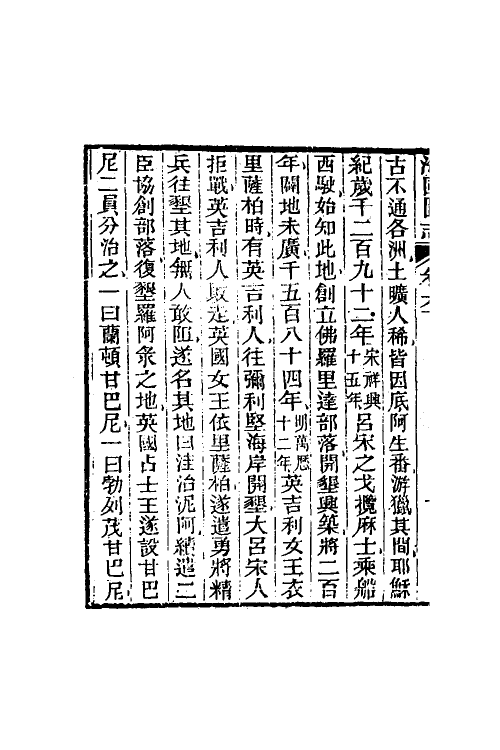 海國圖志
古不通各洲土曠人稀皆因底阿生番游獵其間耶穌
紀歲千二百九十二年宋祥興十五年呂宋之戈攬麻士乘船
西駛始知此地創立佛羅里達部落開墾興築將二百
年闢地未廣千五百八十四年明萬曆十二年英吉利女王衣
里薩柏時有英吉利人往彌利堅海岸開墾大呂宋人
拒戰英吉利人敗走英國女王依里薩柏遂遣勇將精
兵往墾其地無人敢阻遂名其地曰洼治泥阿續遣二
臣協創部落復墾羅阿粂之地英國占士王遂設甘巴
尼二員分治之一曰蘭頓甘巴尼一曰勃列茂甘巴尼